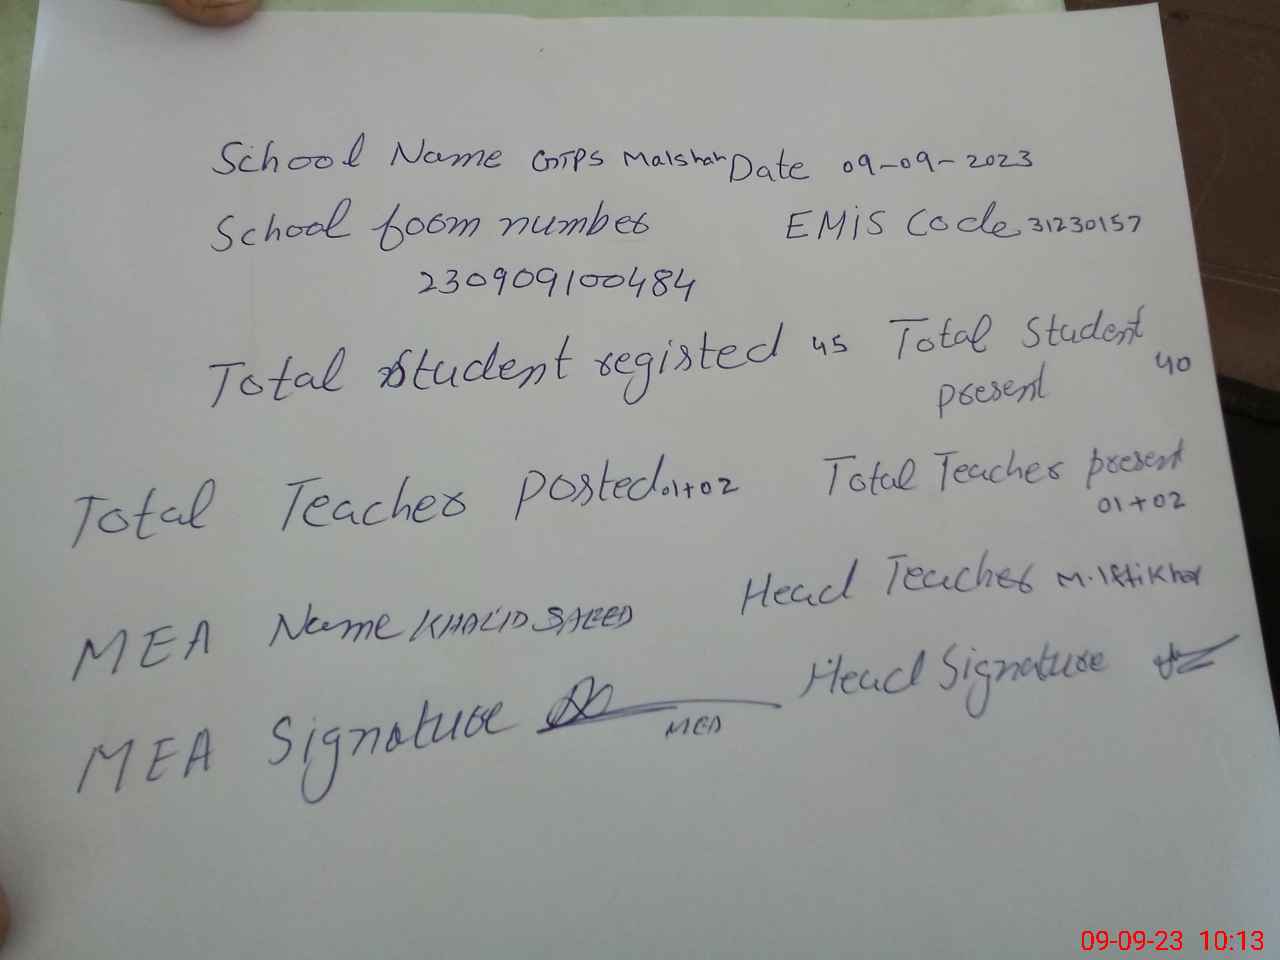 School Name GTPS Malshah Date 09-09-2023
School form number EMIS Code 31230157
230909100484
Total Student registed 45 Total Student
present 40
Total Teacher Posted 01+02 Total Teacher present
01+02
MEA Name KHALID SAEED Head Teacher M. Iftikhar
MEA Signature Head Signature
MEA
09-09-23 10:13